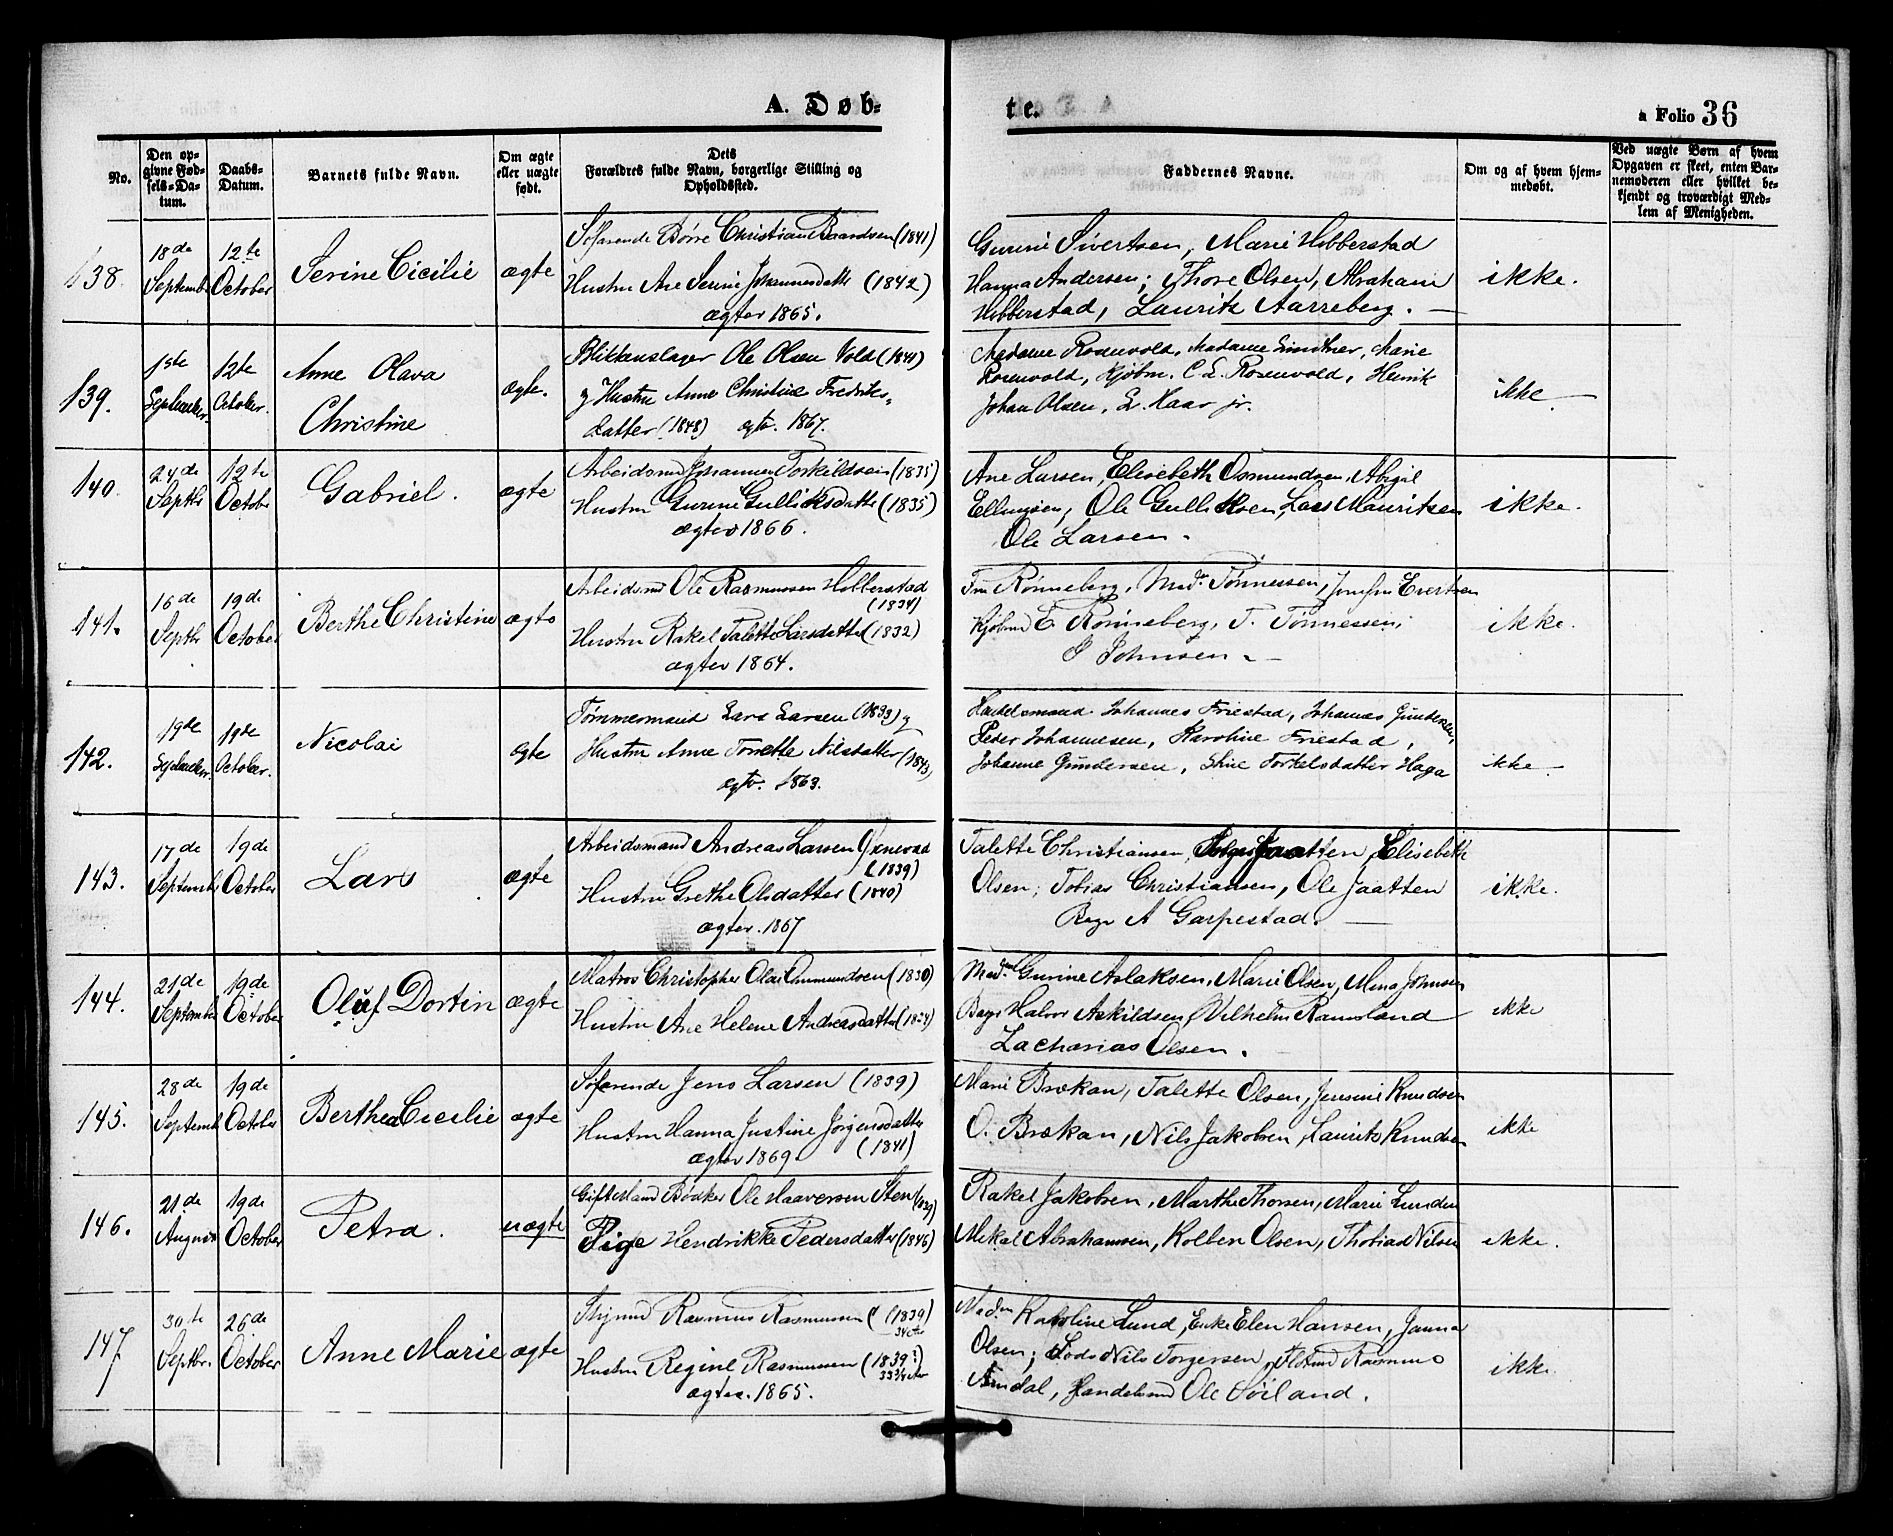 A. Døb-
te.
a Folio 36
No.
Den op-
givne Fød-
sels-Da-
tum.
Daabs-
Datum.
Barnets fulde Navn.
Om ægte
eller uægte
født.
Dets
Forældres fulde Navn, borgerlige Stilling og
Opholdssted.
Faddernes Navne.
Om og af hvem hjem-
medøbt.
Ved uægte Børn af hvem
Opgaven er skeet, enten Bar-
nemoderen eller hvilket be-
kjendt og troværdigt Med-
lem af Menigheden.
138.
18de
Septemb
12te
October
Serine Cicilie
ægte
Søfarende Børre Christian Baardsen (1841)
Hustru Ane Serine Johannesdatter (1842)
ægtev 1865.
Gurine Sivertsen, Marie Hebberstad
Hanna Andersen; Thore Olsen, Abraham
Hebberstad, Lauritz Aarreberg.
ikke.
139.
1ste
September.
12te
October.
Anne Olava
Christine
ægte.
Blikkenslager Ole Olsen Vold (1841)
g Hustru Anne Christine Fredriks-
datter (1848) ægtv. 1867.
Madame Rosenvold, Madame Lindtner, Marie
Rosenvold, Kjøbm. C. L. Rosenvold, Henrik
Johan Olsen, L. Haar jr.
ikke
140.
24de
Septbr
12te
October
Gabriel.
ægte
Arbeidsmd Johannes Torkildsen (1835)
Hustru Gurine Gulliksdatter (1835)
ægtev 1866.
Ane Larsen, Elisebeth Osmundsen, Abigil
Ellingsen; Ole Gulliksen, Lars Mauritsen
Ole Larsen.
ikke.
141.
16de
Septbr
19de
October
Berthe Christine
ægte
Arbeidsmd Ole Rasmussen Hebberstad
(1834)
Hustru Rakel Talette Larsdatter (1832)
ægtev 1864.
Fru Rønneberg, Mad. Tønnessen, Jomfru Evertsen
Kjøbmd E Rønneberg, T. Tønnessen,
P Johnsen.
ikke.
142.
19de
September.
19de
October.
Nicolai
ægte
Tømmermand Lars Larsen (1833) g
Hustru Anne Torette Nilsdatter (1843)
ægtv. 1863.
Handelsmand Johannes Friestad, Johannes Gundersen,
Peder Johannesen, Karoline Friestad,
Johanne Gundersen, Stine Torkelsdatter Haga
ikke
143.
17de
Septemb
19de
October
Lars
ægte
Arbeidsmand Andreas Larsen Øxnevad
(1839)
Hustru Grethe Olsdatter (1840)
ægtev. 1867
Talette Christiansen, Jaatten, Elisebeth
Olsen; Tobias Christiansen, Ole Jaatten
A Garpestad.
ikke.
144.
21de
September
19de
October
Oluf Dortin
ægte
Matros Christopher Olai Ommundsen (1830)
Hustru Ane Helene Andreasdatter (1834)
Madm Gurine Aslaksen, Marie Olsen, Mina Johnsen
Halvor Askildsen, Vilhelm Ramsland
Zacharias Olsen.
ikke
145.
28de
Septemb
19de
October
Berthea Cecilie
ægte
Søfarende Jens Larsen (1839)
Hustru Hanna Justine Jørgensdatter
ægtev 1869. (1841)
Marie Brekan, Talette Olsen, Jensine Knudsen
O. Brekan, Nils Jakobsen, Laurits Knudsen
ikke
146.
21de
August
19de
October
Petra.
uægte
Gift Mand Bødker Ole Haaversen Sten
Pige Hendrikke Pedersdatter (1846)
Rakel Jakobsen, Marthe Thorsen, Marie Lunden
Mikal Abrahamsen, Kolben Olsen, Thobias Nilsen
ikke.
147
30te
Septbr.
26de
October
Anne Marie
ægte
Rasmus Rasmussen (1839)
34 Aar
Hustru Regine Rasmussen (1839:)
33 3/4 Aar
ægtev. 1865.
Madm Karoline Lund, Enke Elen Hansen, Janna
Olsen; Lods Nils Torgersen, Rasmus
Arndal, Handelsmd Ole Søiland.
ikke.